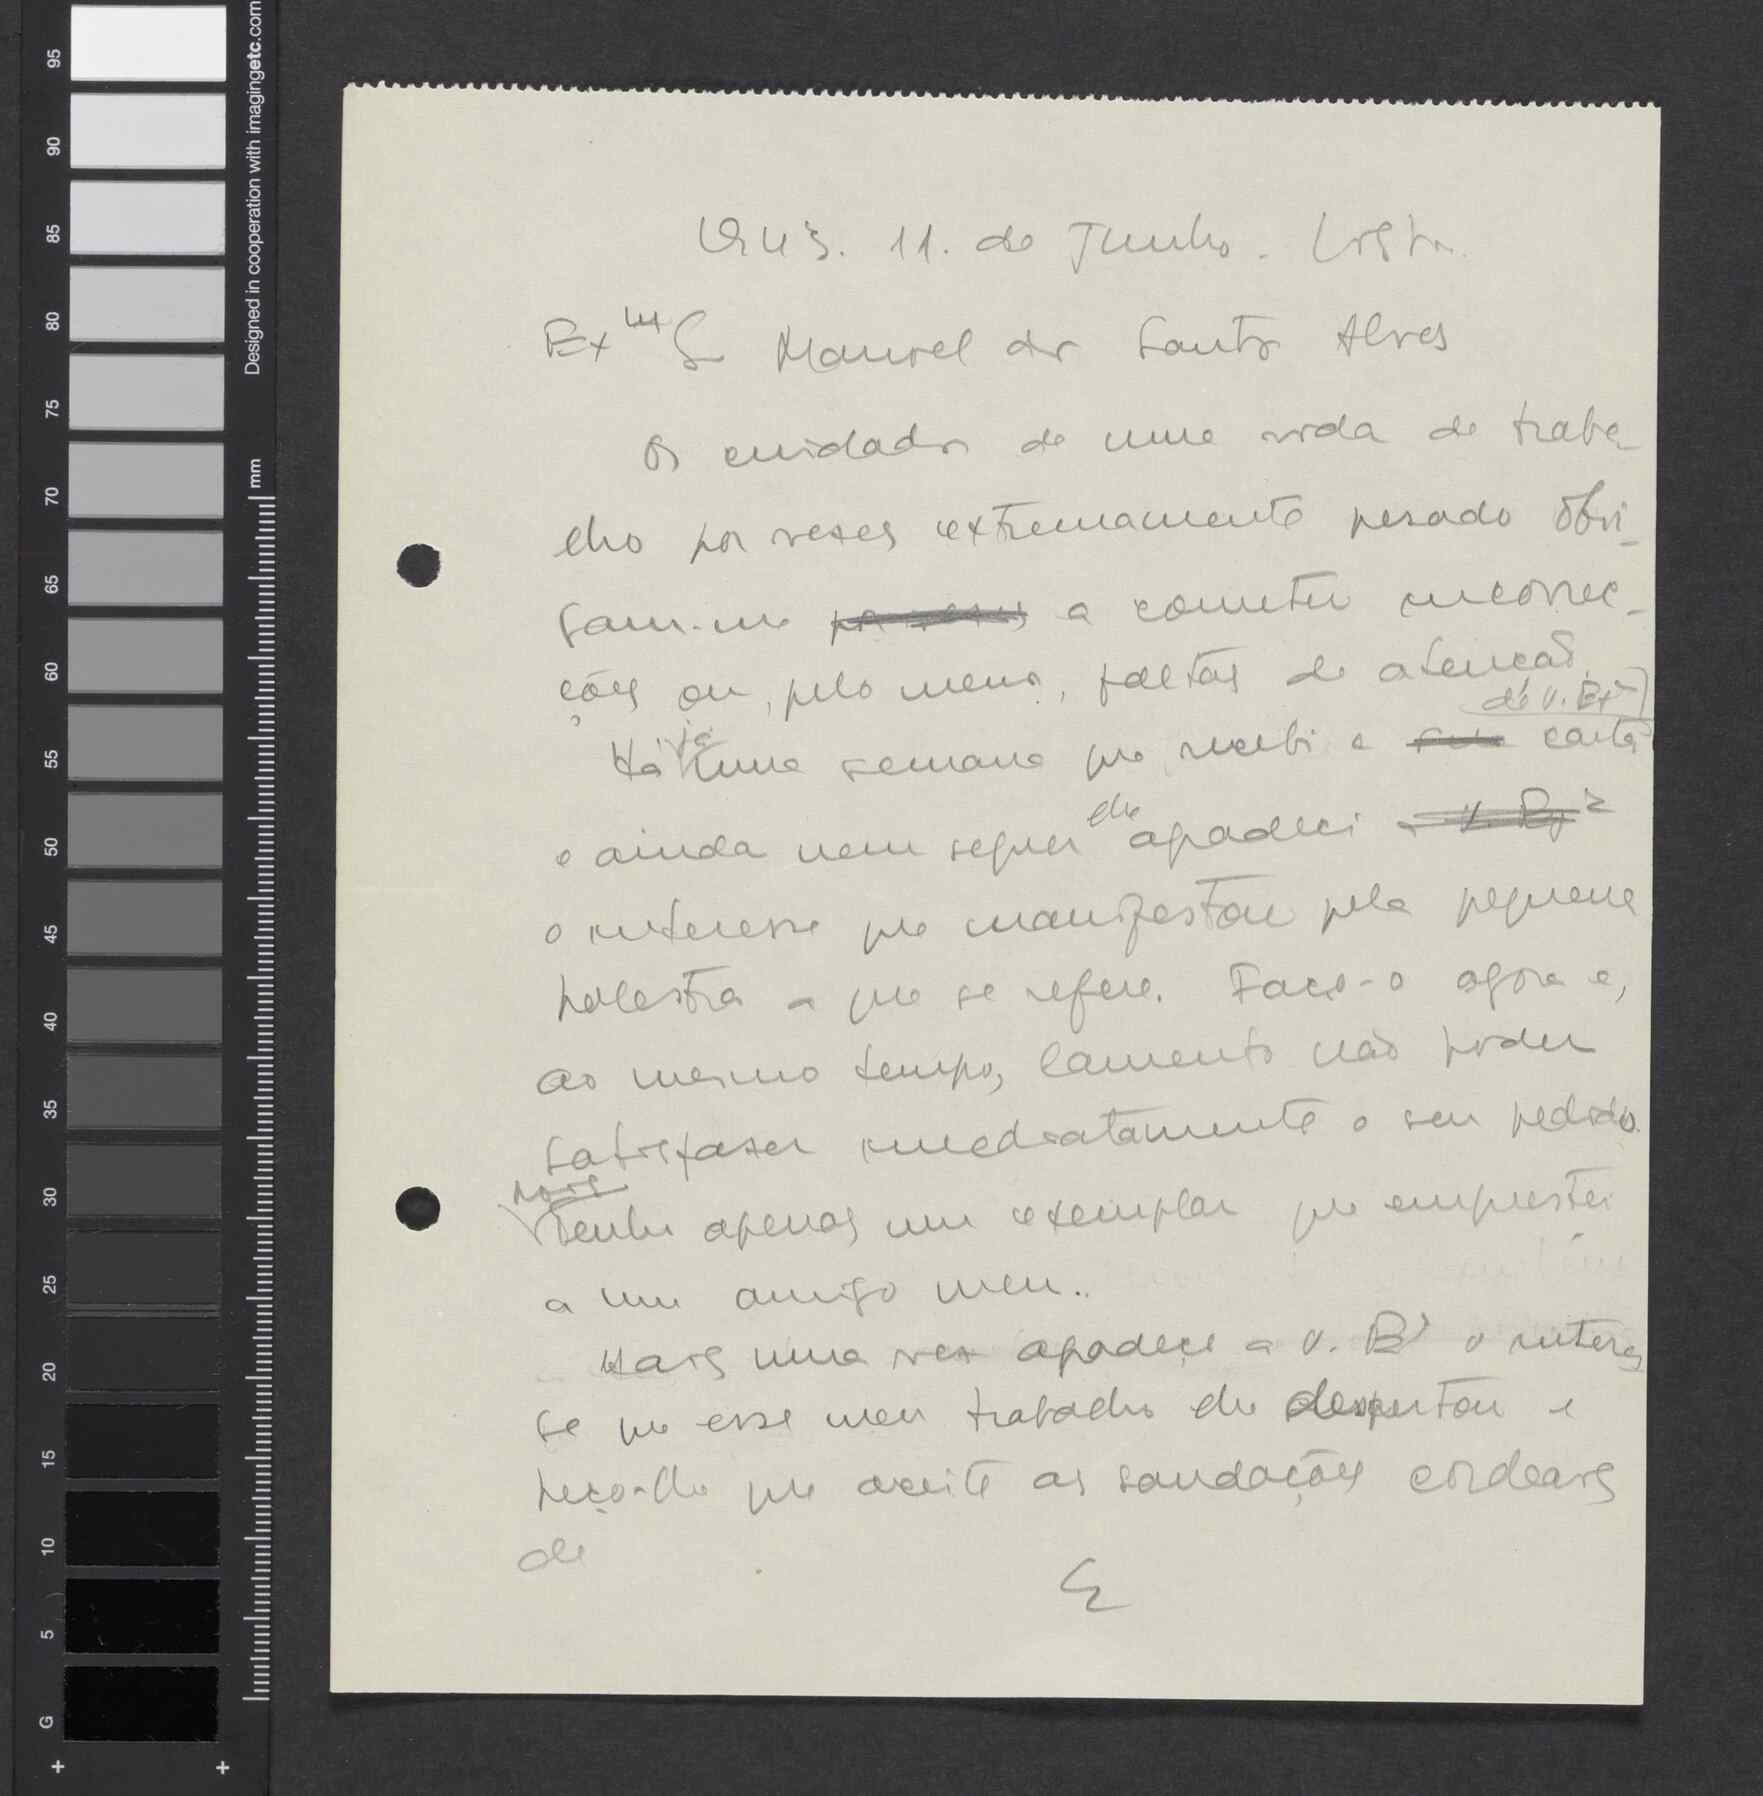 Designed in cooperation with imagingetc.com
mm
95
90
85
80
75
70
65
60
55
50
45
40
35
30
25
20
15
10
5
G
1943. 11. de Junho. Lisboa.
Exmº Sr Manoel dos Santos Alves
Os cuidados de uma vida de traba-
lho por vezes extremamente pesado obri-
gam-me por vezes a cometer incorrec-
ções ou, pelo menos, faltas de atenção.
de V. Exª
Há já uma semana que recebi a sua carta
e ainda nem sequer lhe agradeci a V. Exª
o interesse que manifestou pela pequena
palestra a que se refere. Faço-o agora e,
ao mesmo tempo, lamento não poder
satisfazer imediatamente o seu pedido.
pois
Tenho apenas um exemplar que emprestei
a um amigo meu.
Mais uma vez agradeço a V. Exª o interes
se que esse meu trabalho lhe despertou e
peço-lhe que aceite as saudações cordeais
de